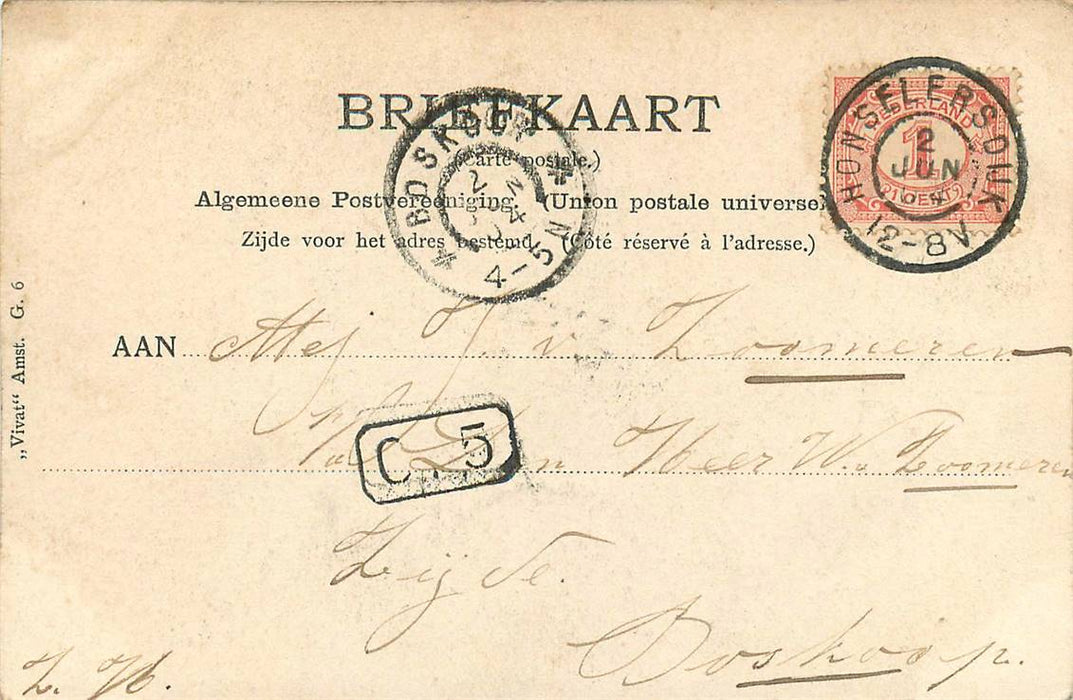 BRIEFKAART
(Carte postale.)
Algemeene Postvereeniging. (Union postale universel
Zijde voor het adres bestemd. (Côté réservé à l'adresse.)
HONSELERSDIJK
2
JUN
12-8V
NEDERLAND
1
CENT
BOSKOOP
4-5N
AAN Mej J. v. Zoomeren
Den Heer W. v. Zoomeren
C. 5
Zijde.
Boskoop.
Z. H.
„Vivat“ Amst. G. 6